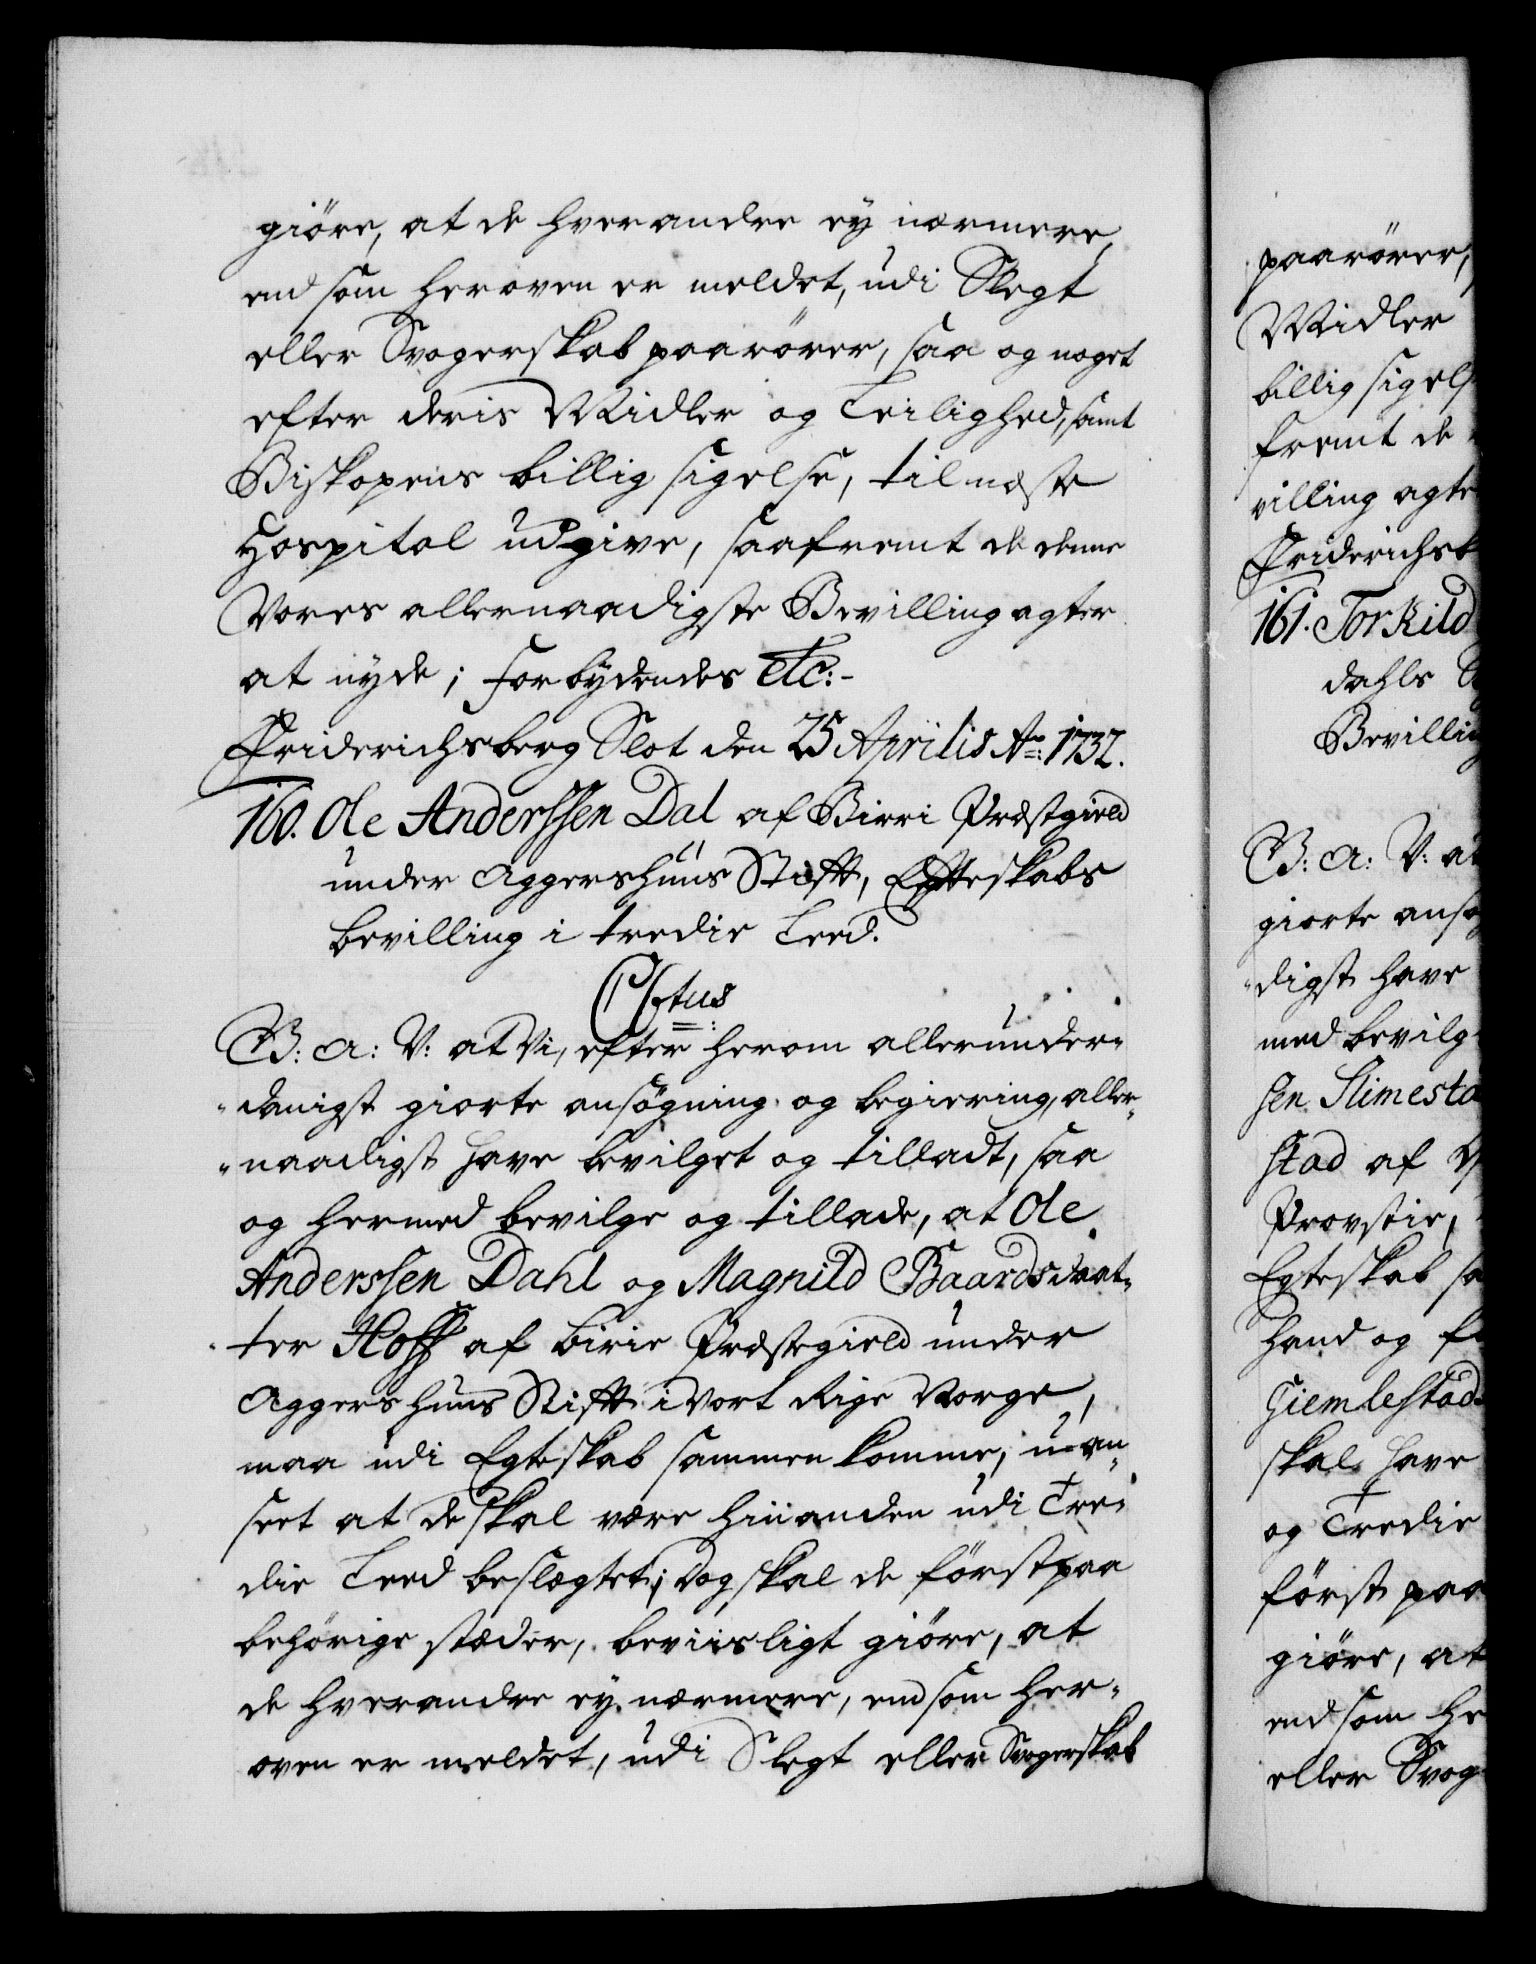 giöre, at de hverandre ey nærmere,
end som heroven er meldet, udi Slegt
eller Svogerskab paarörer, saa og noget
efter deris Midler og Leilighed, samt
Biskopens billig sigelse, til næste
Hospital udgive, saafremt de denne
Vores allernaadigste Bevilling agter
at nyde; forbydendes etc:-
Friderichsberg Slot den 25 Aprilis Ao: 1732.
160. Ole Anderssen Dal af Birri Præstgield
under Aggershuus Stift, Egteskabs
bevilling i tredie Leed.
C 6tus
G: A: V: at Vi, efter herom allerunder-
-danigst giorte ansøgning og begiering, aller-
-naadigst have bevilget og tilladt, saa
og hermed bevilge og tillade, at Ole
Anderssen Dahl og Magnild Baardsdaat-
-ter Hoff af Birie Præstegield under
Aggershuus Stift i Vort Rige Norge,
maa udi Egteskab sammen komme, u-an-
seet at de skal være hinanden udi Tre-
die Leed beslægtet; Dog skal de förstpaa
behörige stæder, beviisligt giöre, at
de hverandre ey nærmere, end som her-
oven er meldet, udi Slegt eller Svogerskab
paarörer,
Midler
billig sigelse
fremt de
villing agte
Friderichsb
161. Torkild
dahls
Bevilling
G: A: V: at
giorte ansø
-digst have
med bevilg
sen Slimesta
stad af
Provstie,
Egteskab sa
hand og
Giemlestad
skal have
og Tredie
först paa
giöre, at
end som he
eller Svog